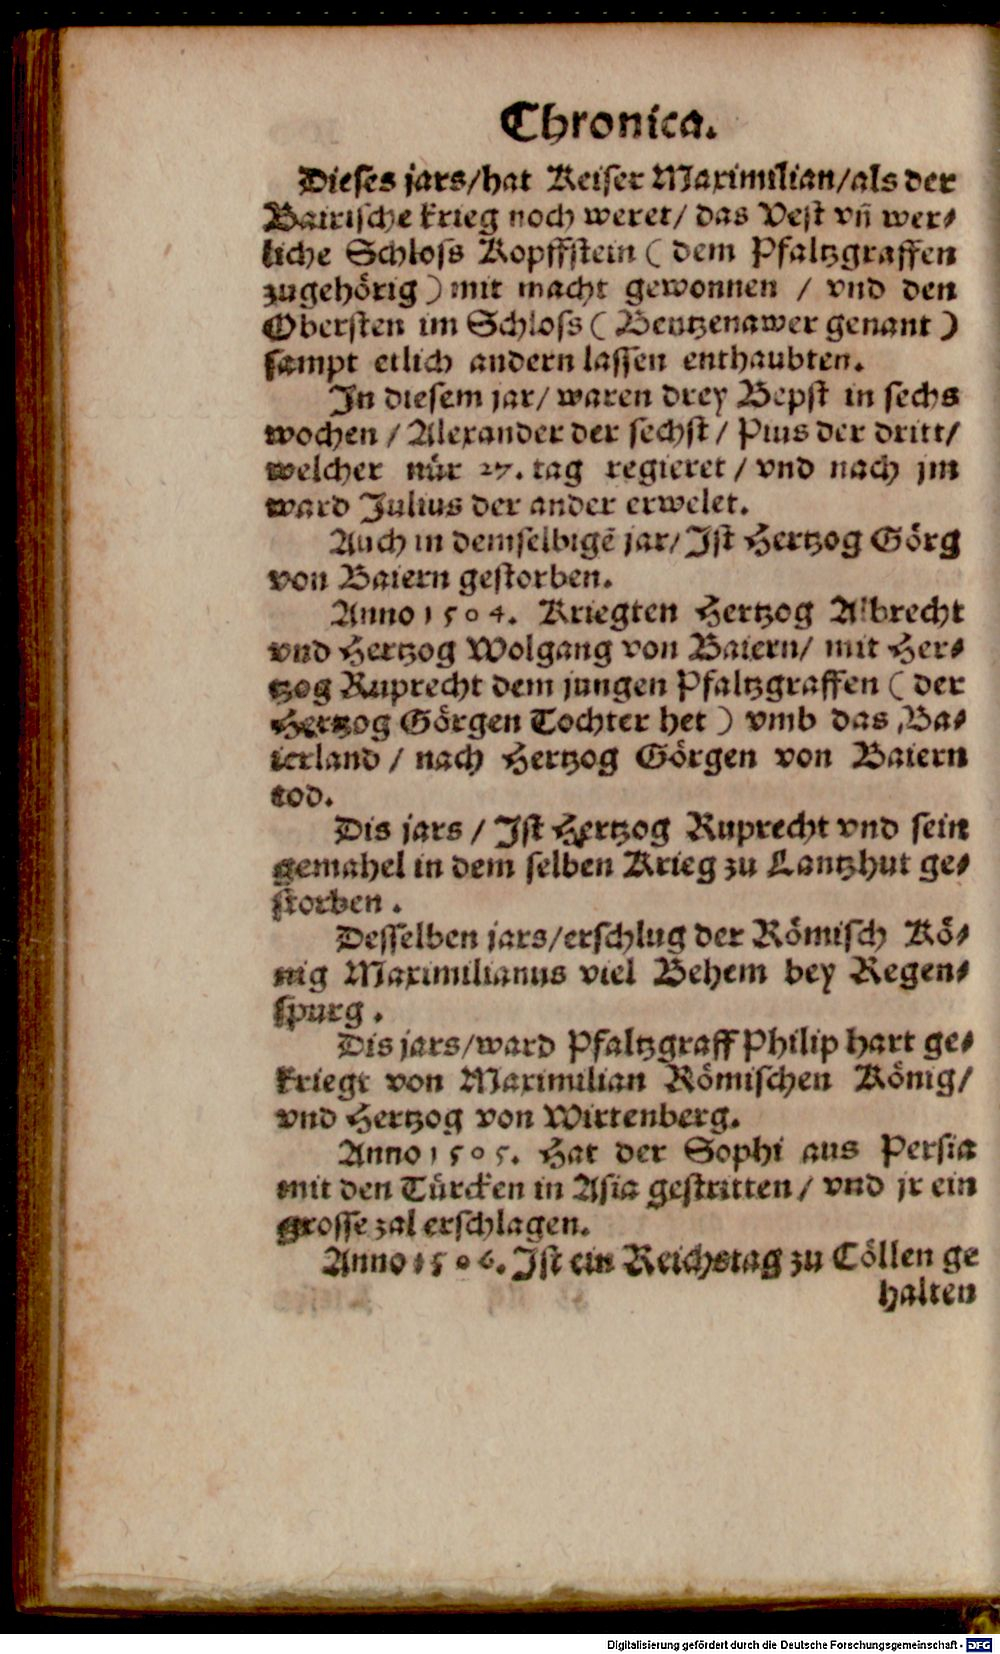 Chronica.
Dieses jars/hat Keiser Maximilian/als der
Bairische krieg noch weret/ das Vest vñ wer⸗
liche Schloss Kopffstein ( dem Pfaltzgraffen
zugehörig ) mit macht gewonnen / vnd den
Obersten im Schloss ( Bentzenawer genant )
sampt etlich andern lassen enthaubten.
In diesem jar/ waren drey Bepst in sechs
wochen / Alexander der sechst / Pius der dritt/
welcher nür 27. tag regieret / vnd nach jm
ward Julius der ander erwelet.
Auch in demselbigē jar/ Ist Hertzog Görg
von Baiern gestorben.
Anno 1504. Kriegten Hertzog Albrecht
vnd Hertzog Wolgang von Baiern/ mit Her⸗
tzog Ruprecht dem jungen Pfaltzgraffen ( der
Hertzog Görgen Tochter het ) vmb das Ba⸗
ierland / nach Hertzog Görgen von Baiern
tod.
Dis jars / Ist Hertzog Ruprecht vnd sein
gemahel in dem selben Krieg zu Lantzhut ge⸗
storben .
Desselben jars/erschlug der Römisch Kö⸗
nig Maximilianus viel Behem bey Regen⸗
spurg .
Dis jars/ward Pfaltzgraff Philip hart ge⸗
kriegt von Maximilian Römischen König/
vnd Hertzog von Wirtenberg.
Anno 1505. Hat der Sophi aus Persia
mit den Türcken in Asia gestritten / vnd jr ein
grosse zal erschlagen.
Anno 1506. Ist ein Reichstag zu Cöllen ge
halten
Digitalisierung gefördert durch die Deutsche Forschungsgemeinschaft - DFG